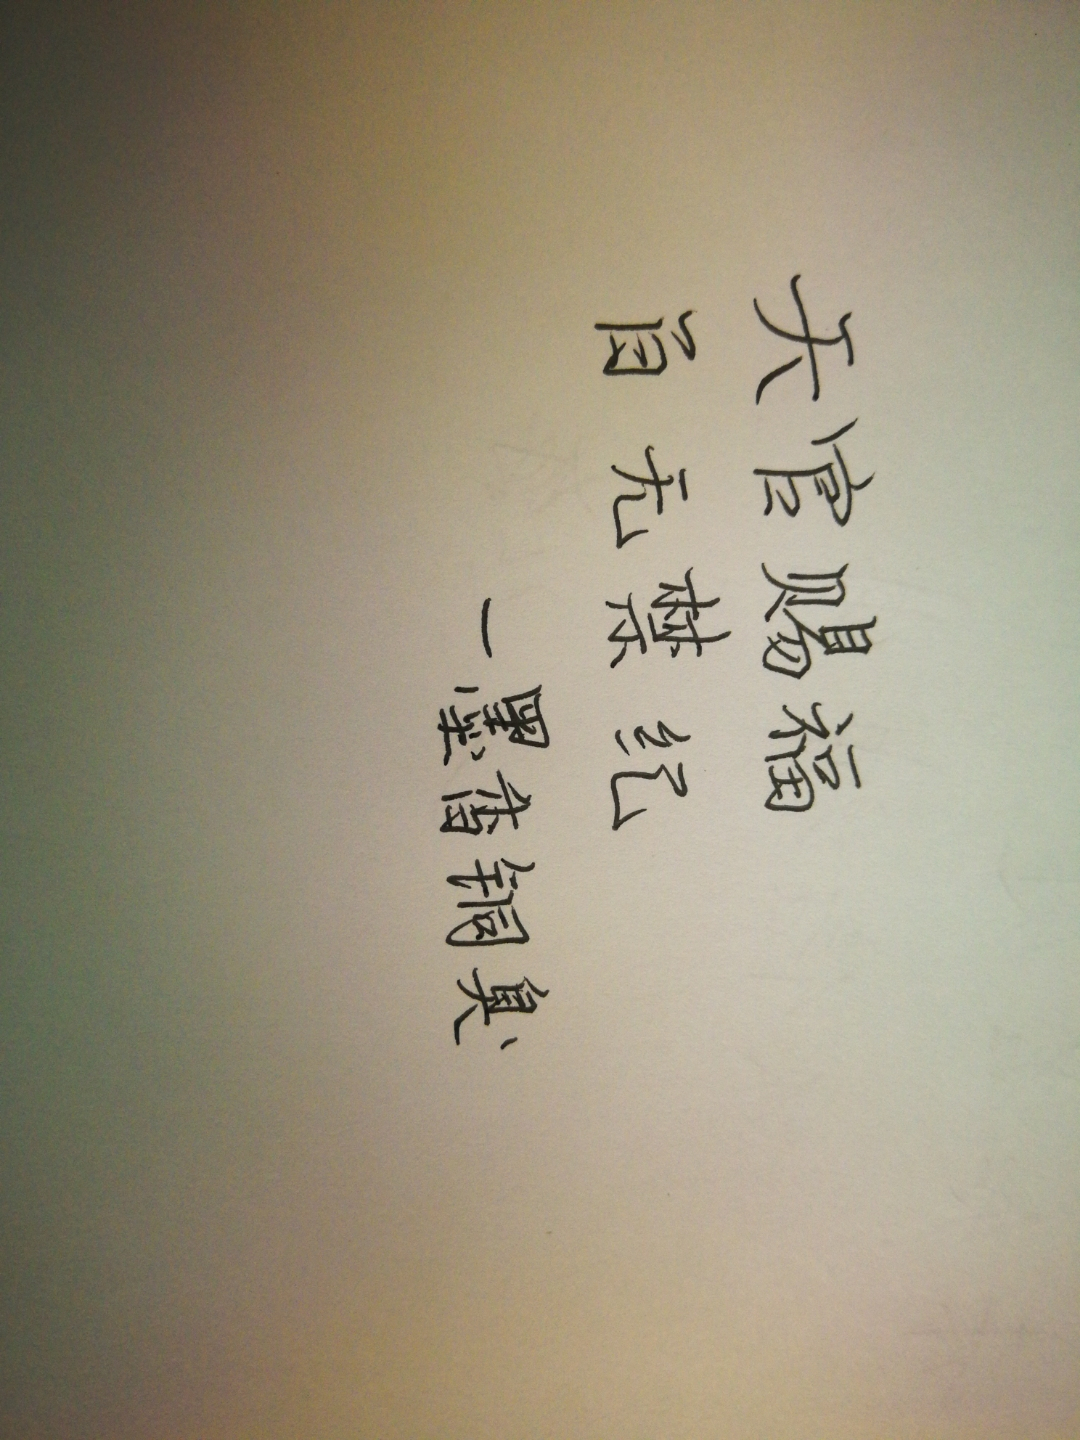 天官赐福
百无禁纪
—墨香铜臭